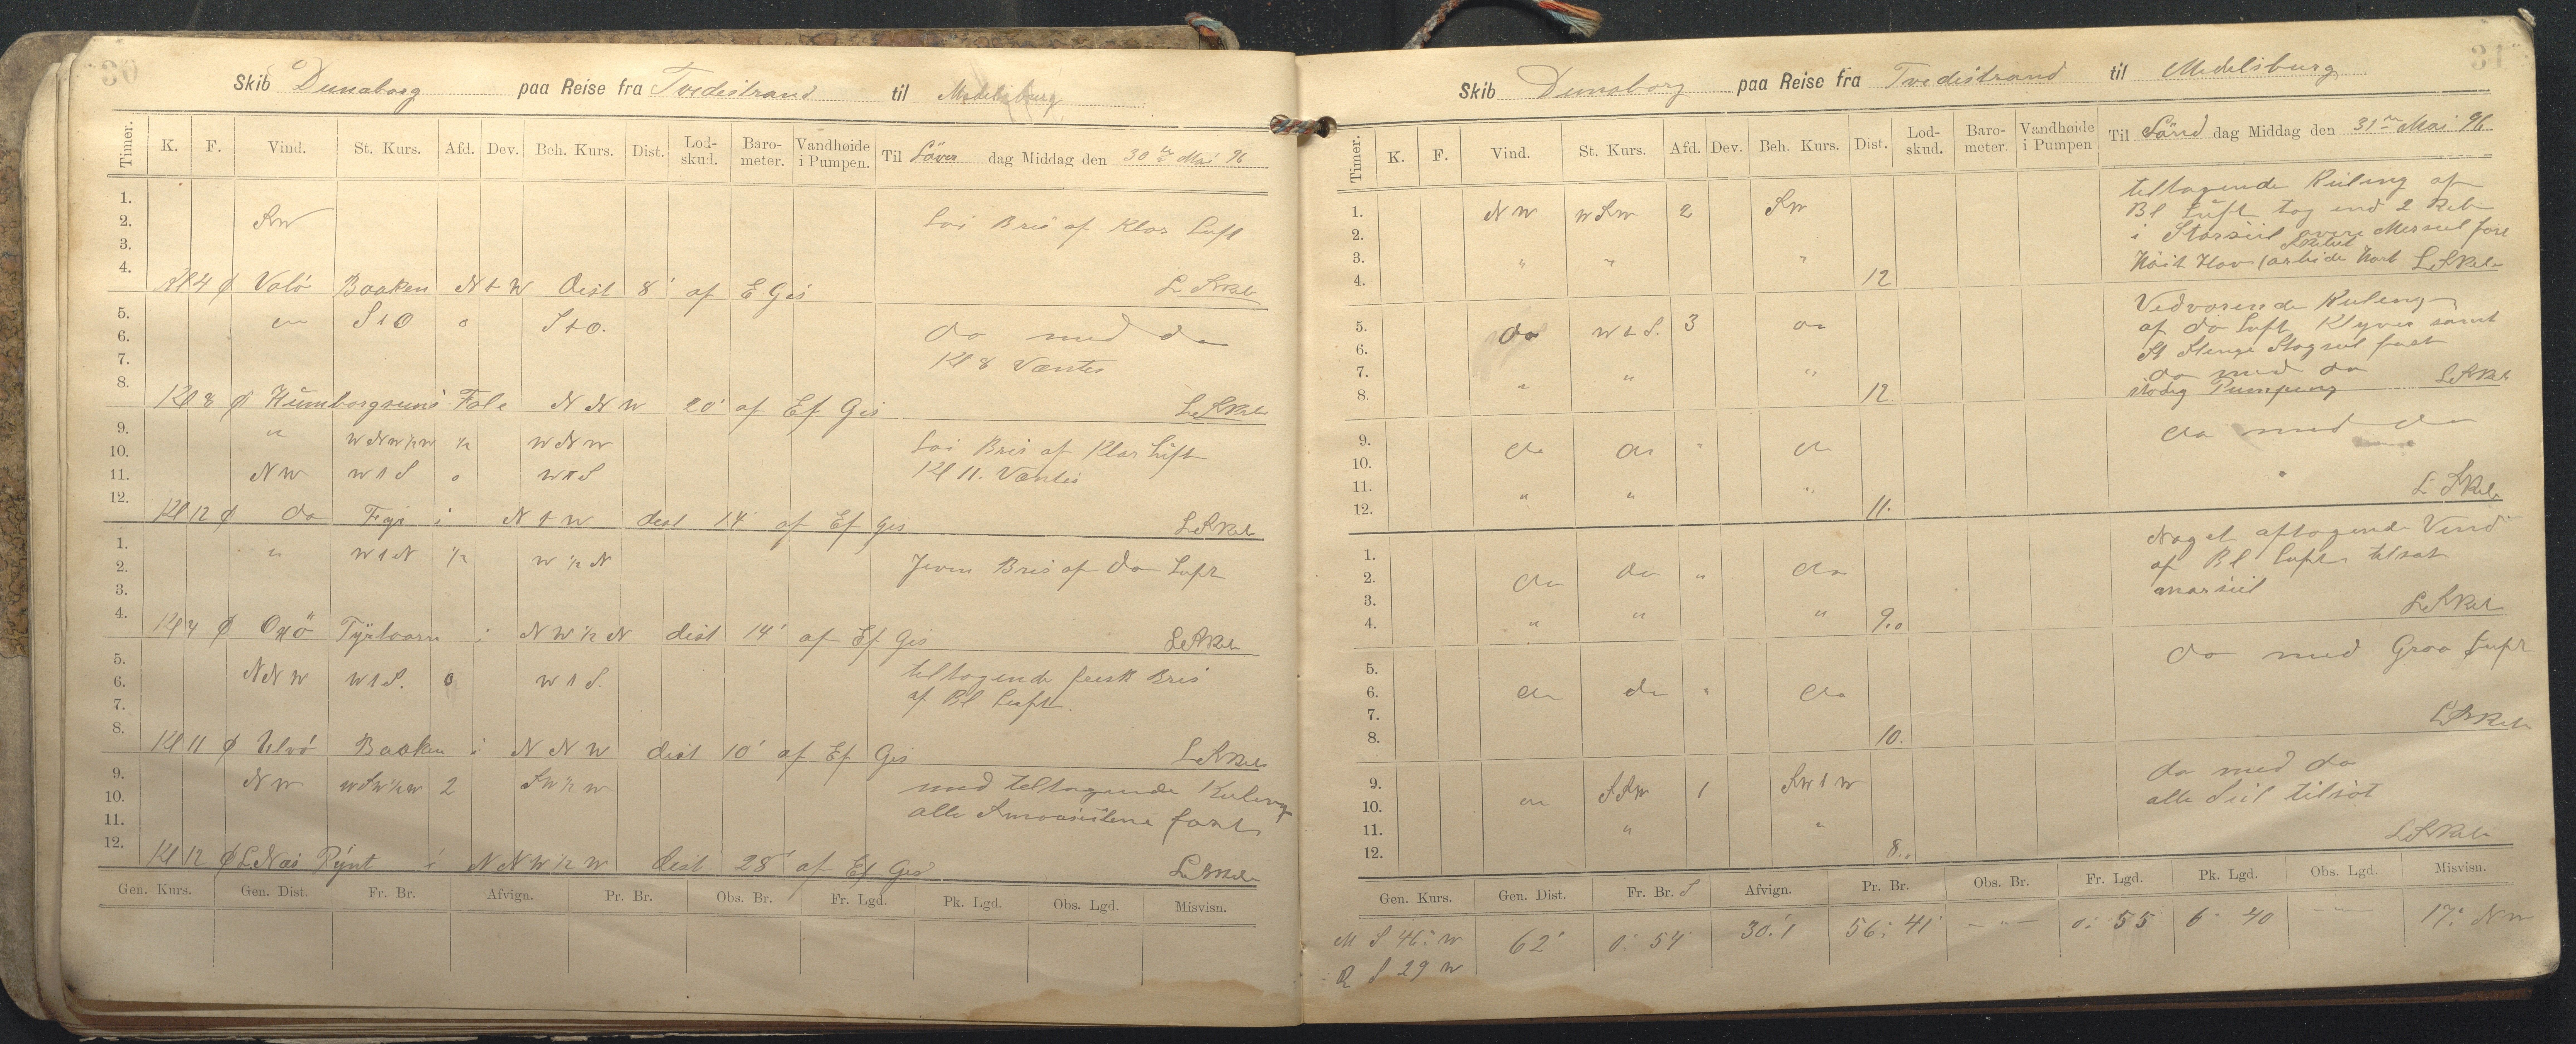 30
Skib Dunaborg paa Reise fra Tvedestrand til Medelsburg
Timer. K. F. Vind. St. Kurs. Afd. Dev. Beh. Kurs. Dist. Lod-skud. Baro-meter. Vandhøide i Pumpen. Til Löver dag Middag den 30te Mai 96
1.
2. SW Lai Bris af Klar Luft
3.
4. Kl 4 Ø Valö Baaken N t W Dist 8' af E Gis
5. do S t O o S t O. do med do
6.
7. Kl 8 Væntes
8. Kl 8 Ø Humborgsuns Fale N N W 20' af Ef Gis
9. " W N W ½ W ½ W N W Lai Bris af Klar Luft
10.
11. N W W t S o W t S Kl 11. Væntes
12. Kl 12 Ø do Fyr i N t W dist 14 af Ef Gis
1. " W t N ½ W ½ N
2. Jevn Bris af do Luft
3.
4. Kl 4 Ø Oxö Tyrtaarn i N W ½ N dist 14' af Ef Gis
5. N N W W t S. o W t S. teltagende frisk Bris
6. af Bl Luft.
7.
8. Kl 11 Ø Ulvö Baaken i N N W dist 10' af Ef Gis
9. N W W S W ½ W 2 S W ½ W med teltagende Kuling
10. alle Smaaseilene fast
11.
12. Kl 12 Ø L. Næs Pynt i N N W ½ W dist 28' af Ef Gis
Gen. Kurs. Gen. Dist. Fr. Br. Afvign. Pr. Br. Obs. Br. Fr. Lgd. Pk. Lgd. Obs. Lgd. Misvisn.
31
Skib Dunaborg paa Reise fra Tvedestrand til Medelsburg
Timer. K. F. Vind. St. Kurs. Afd. Dev. Beh. Kurs. Dist. Lod-skud. Baro-meter. Vandhøide i Pumpen Til Sönd dag Middag den 31te Mai 96
teltagende Kuling af
1. N W W S W 2 S W Bl Luft tog ind 2 Reb
2. i Storseil övre Merseil fast
3. " " "
4. 12
Vedvarende Kuling
5. do W t S. 3 do af do Luft Klyver samt
6. St Stenge Stagseil fast
7. " " " do med do
8. 12 stadig Pumping
9. do do " do do med do
10.
11. " " "
12. 11.
Noget aftagende Vind
1. af Bl Luft tilsat
2. do do " do
3.
4. " " " 9.0
5. do med Graa Luft
6. do do " do
7.
8. 10.
9. do S S W 1 S W t W do med do
10. alle Seil tilsat
11. " "
12. 8.
Gen. Kurs. Gen. Dist. Fr. Br. S Afvign. Pr. Br. Obs. Br. Fr. Lgd. Pk. Lgd. Obs. Lgd. Misvisn.
M S 46° W 62' 0° 54 30.1 56° 41' — " — 0° 55 6° 40 — " — 17° N W
R S 29 W